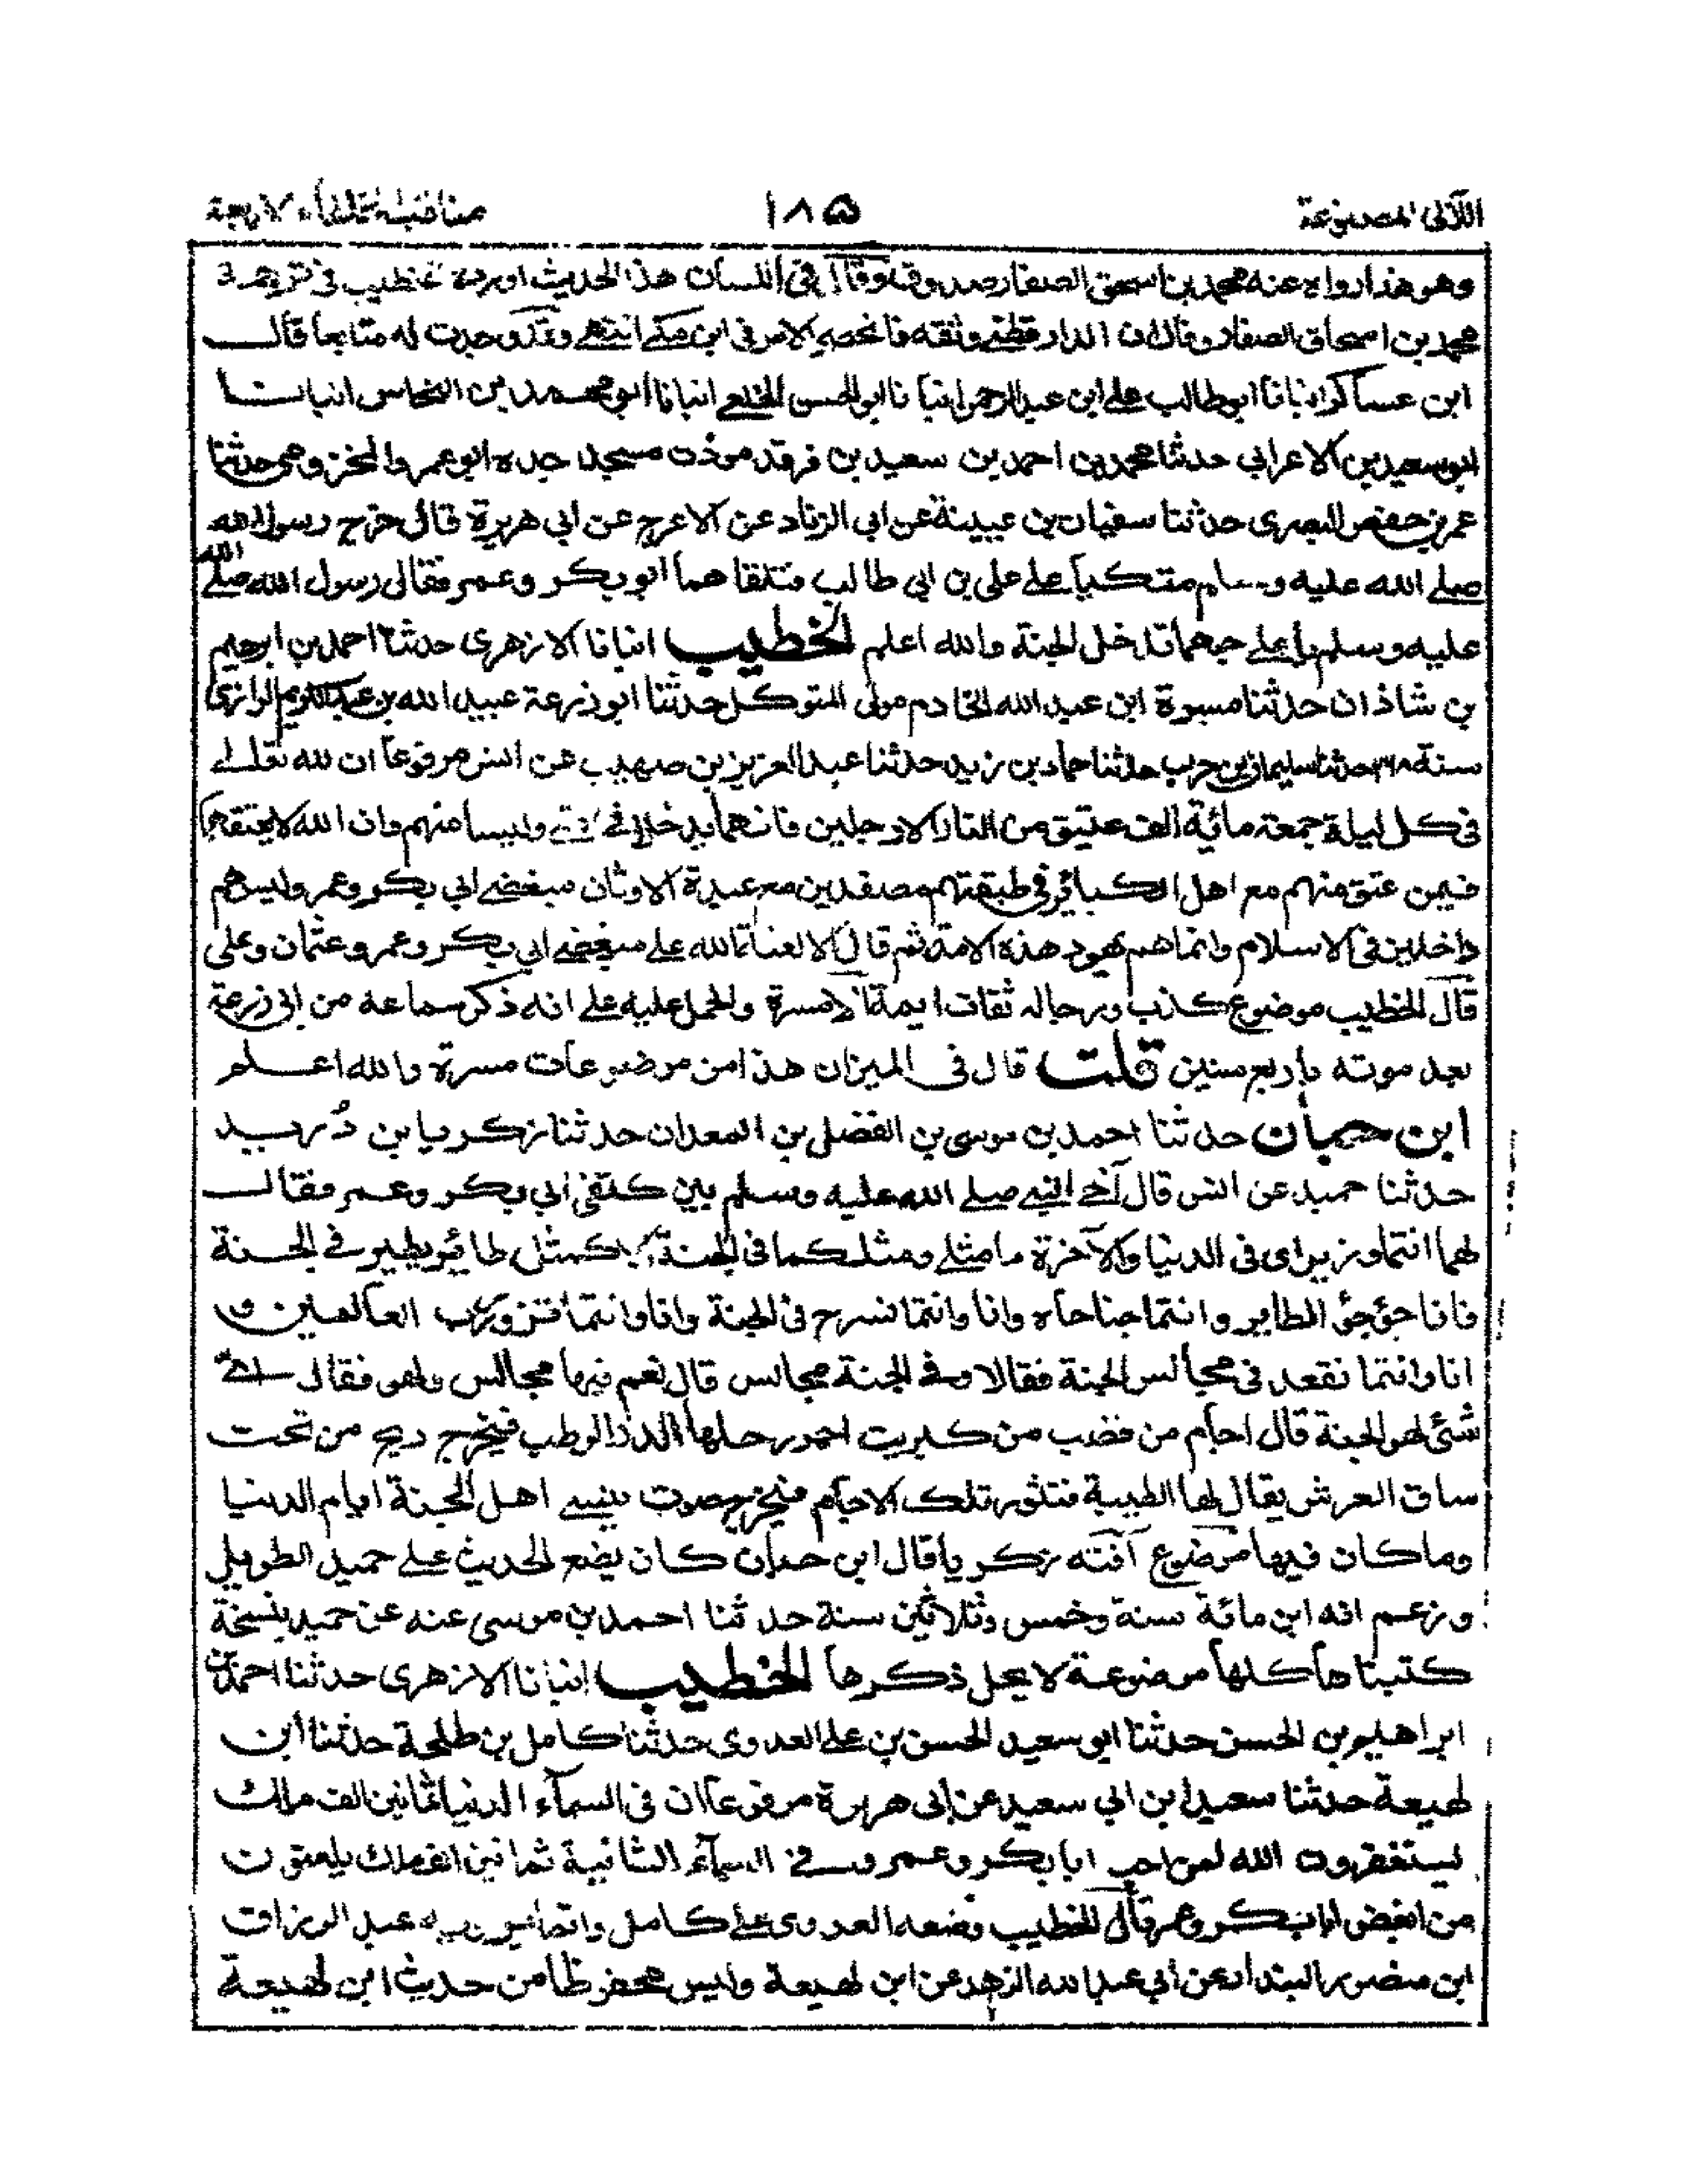 اللآلى المصنوعة ١٨٥ مناقب الخلفاء الاربعة
وهو هذا رواه عنه محمد بن اسحق الصفار صدوق وقال فى اللسان هذا الحديث اورده الخطيب فى ترجمة
محمد بن اسحاق الصفار وقال ان الدارقطنى وثقه فانحصر الامر فى ابن مكى انتهى وقد وجدت له متابعا قال
ابن عساكر انبانا ابو طالب على ابن عبد الرحمن انبانا ابو الحسن الخلعى انبانا ابو محمد بن النحاس انبانا
ابو سعيد بن الاعرابى حدثنا محمد بن احمد بن سعيد بن فرقد موذن مسجد جده ابو عمرو المخزومى حدثنا
عمر بن حفص البصرى حدثنا سفيان بن عيينة عن ابى الزناد عن الاعرج عن ابى هريرة قال خرج رسول الله
صلى الله عليه وسلم متكيا على على بن ابى طالب فتلقاهما ابو بكر وعمر فقال رسول الله صلى الله
عليه وسلم يا على حبهما تدخل الجنة والله اعلم الخطيب انبانا الازهرى حدثنا احمد بن ابرهيم
بن شاذان حدثنا مسرة ابن عبد الله الخادم مولى المتوكل حدثنا ابو زرعة عبيد الله بن عبد الكريم الرازى
سنة حدثنا سليمان بن حرب حدثنا حماد بن زيد حدثنا عبد العزيز بن صهيب عن انس مرفوعا ان لله تعالى
فى كل ليلة جمعة مائة الف عتيق من النار الا رجلين فانهما يدخلان فى وليسا منهم وان الله لا يعتقهما
فيمن عتق منهم مع اهل الكبائر فى طبقتهم مصفدين مع عبدة الاوثان مبغضى ابى بكر وعمر وليس هم
داخلين فى الاسلام وانما هم يهود هذه الامة ثم قال الا لعنة الله على مبغضى ابى بكر وعمر وعثمان وعلى
قال الخطيب موضوع كذب ورجاله ثقات ايمة الا مسرة والحمل عليه على انه ذكر سماعه من ابى زرعة
بعد موته باربع سنين قلت قال فى الميزان هذا من موضوعات مسرة والله اعلم
ابن حبان حدثنا احمد بن موسى بن الفضل بن المعدان حدثنا زكريا بن دُريد
حدثنا حميد عن انس قال آخى النبى صلى الله عليه وسلم بين كتفى ابى بكر وعمر فقال
لهما انتما وزيراى فى الدنيا والآخرة ما مثلى ومثلكما فى الجنة الا كمثل طائر يطير فى الجنة
فانا جؤجؤ الطاير وانتما جناحاه وانا وانتما نسرح فى الجنة وانا وانتما نزور رب العالمين و
انا وانتما نقعد فى مجالس الجنة فقالا وفى الجنة مجالس قال نعم فيها مجالس ولهو فقال اى
شئ لهو الجنة قال اجام من قضب من كبريت احمر رحلها الدر الرطب فيخرج ريح من تحت
ساق العرش يقال لها الطيبة فتثور تلك الاجام فيخرج صوت ينسى اهل الجنة ايام الدنيا
وما كان فيها موضوع آفته زكريا قال ابن حبان كان يضع الحديث على حميد الطويل
وزعم انه ابن مائة سنة وخمس وثلاثين سنة حدثنا احمد بن موسى عنه عن حميد بنسخة
كتبناها كلها موضوعة لا يحل ذكرها الخطيب انبانا الازهرى حدثنا احمد بن
ابراهيم بن الحسن حدثنا ابو سعيد الحسن بن على العدوى حدثنا كامل بن طلحة حدثنا ابن
لهيعة حدثنا سعيد ابن ابى سعيد عن ابى هريرة مرفوعا ان فى السماء الدنيا ثمانين الف ملك
يستغفرون الله لمن احب ابا بكر وعمر وفى السماء الثانية ثمانين الف ملك يلعنون
من ابغض ابا بكر وعمر قال الخطيب وضعه العدوى على كامل وانما يرويه عبد الرزاق
ابن منصور البندار عن ابى عبد الله الزهد عن ابن لهيعة وليس محفوظا من حديث ابن لهيعة